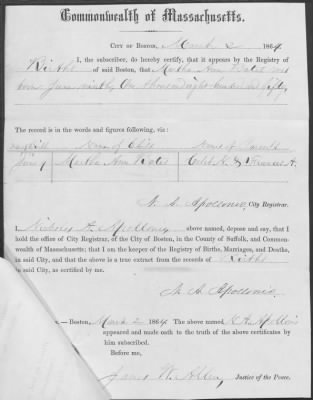 Commonwealth of Massachusetts.
CITY OF BOSTON, March 2 1864
I, the subscriber, do hereby certify, that it appears by the Registry of
Births of said Boston, that Martha Ann Bates was
born June ninth One thousand eight hundred and fifty
The record is in the words and figures following, viz:
Name of Child Name of Parents
June 9 Martha Ann Bates Caleb N. & Frances A.
N. A. Apollonio, City Registrar.
I, Nicholas A. Apollonio above named, depose and say, that I
hold the office of City Registrar, of the City of Boston, in the County of Suffolk, and Common-
wealth of Massachusetts; that I am the keeper of the Registry of Births, Marriages, and Deaths,
in said City, and that the above is a true extract from the records of Births
in said City, as certified by me.
N. A. Apollonio.
—Boston, March 2 1864 The above named, N. A. Apollonio
appeared and made oath to the truth of the above certificates by
him subscribed.
Before me,
James W. Allen, Justice of the Peace.